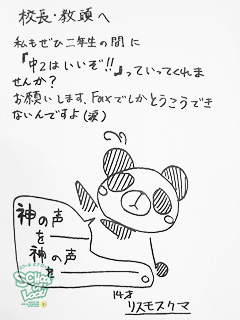 校長・教頭へ
私もぜひ二年生の間に
『中2はいいぞ!!』っていってくれま
せんか?
お願いします、Faxでしかとうこうでき
ないんですよ(涙)
神の声
を神の声
を
SCHOOL OF LOCK!
14才
リスモスクマ